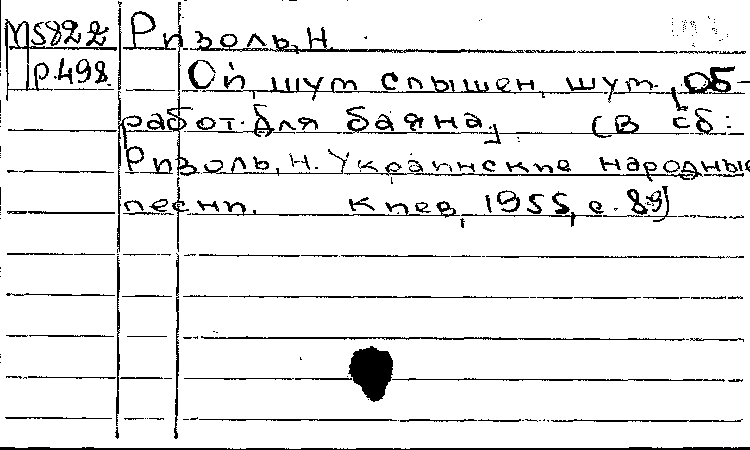 М5822 Ризоль, Н.
р.498 Ой, шум слышен, шум. [Об-
работ. для баяна]. (В сб.:
Ризоль, Н. Украинские народные
песни. Киев, 1955, с. 89)